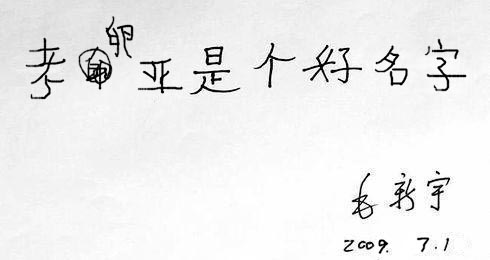 考卵亚是个好名字
毛新宇
2009. 7.1